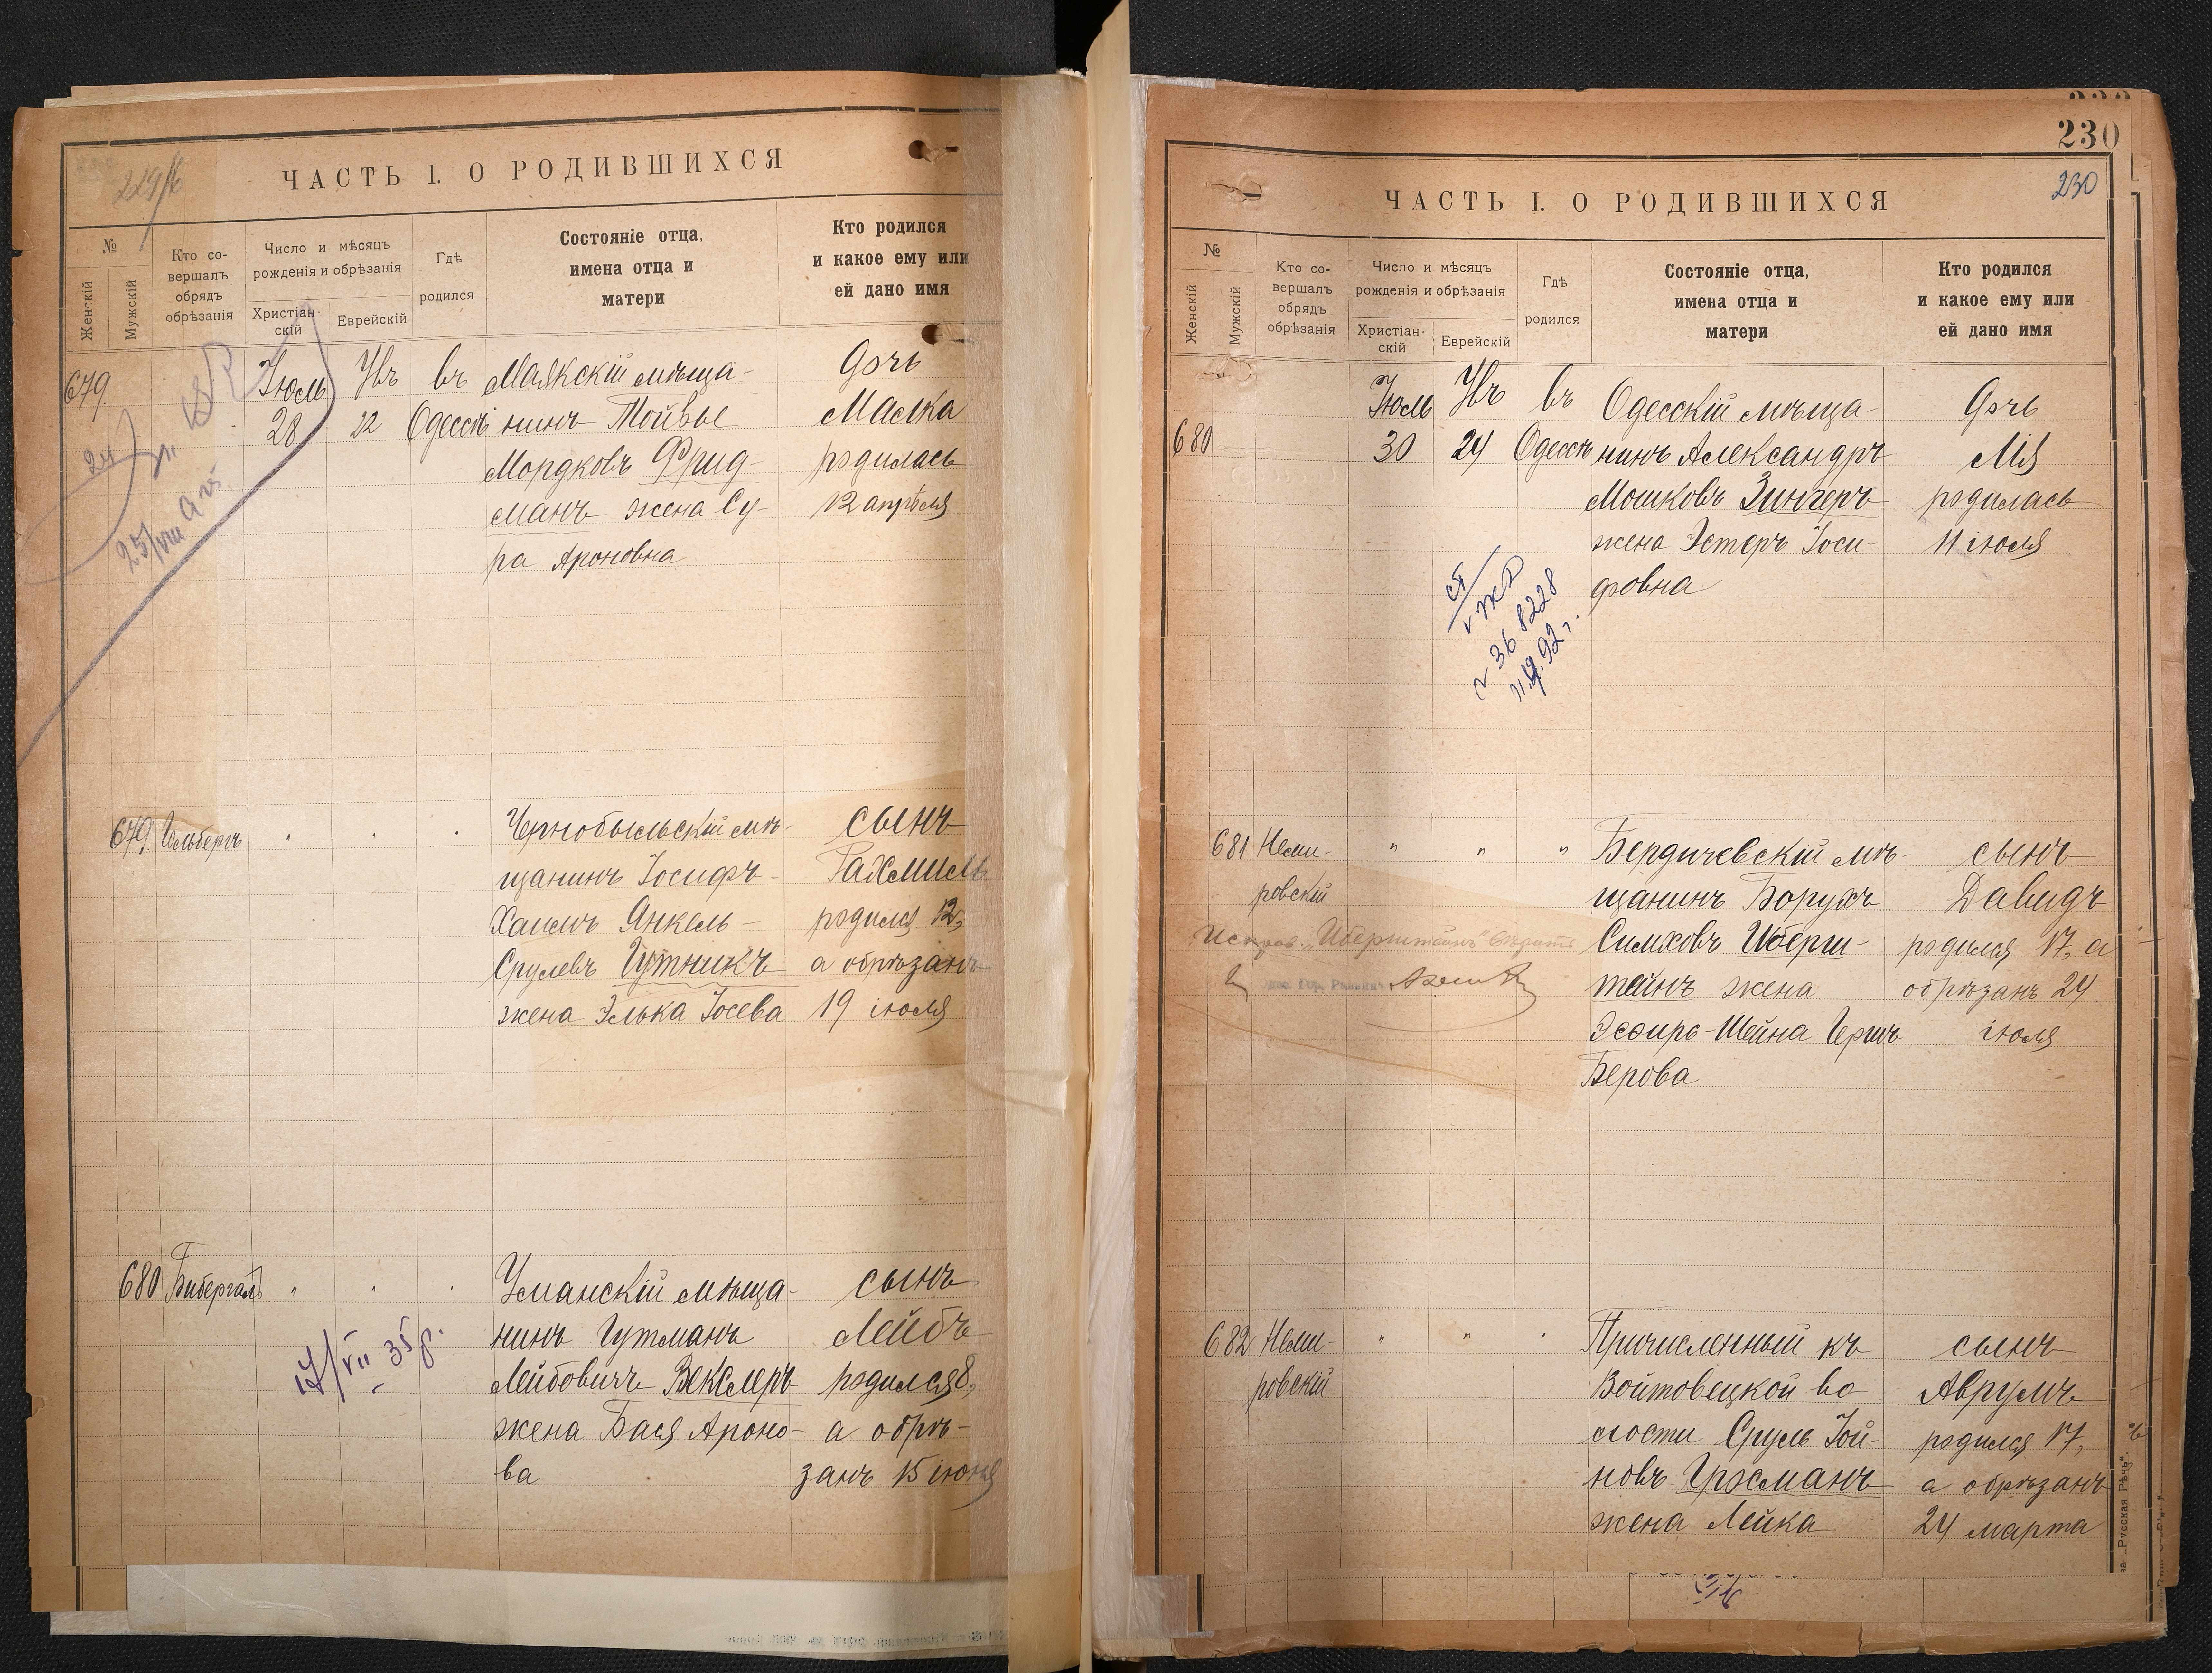 ЧАСТЬ I. О РОДИВШИХСЯ
№
Женскій
Мужскій
Кто со-
вершалъ
обрядъ
обрѣзанія
Число и мѣсяцъ
рожденія и обрѣзанія
Христіан-
скій
Еврейскій
Гдѣ
родился
Состояніе отца,
имена отца и
матери
Кто родился
и какое ему или
ей дано имя
679
Іюль
28
22
въ
Одессѣ
Маякскій мѣща-
нинъ Мойше
Мордковъ Фрид-
манъ жена Су-
ра Ароновна
Дочь
Малка
родилась
12 апрѣля
24
25/VIII
679
Гольбергъ
Чернобыльскій мѣ-
щанинъ Іосифъ-
Хаимъ Янкель-
Срулевъ Гутникъ
жена Элька Іосева
сынъ
Рахмиль
родился 12,
а обрѣзанъ
19 іюля
680
Бибергалъ
Уманскій мѣща-
нинъ Гутманъ
Лейбовичъ Векслеръ
жена Бася Ароно-
ва
сынъ
Лейбъ
родился 8,
а обрѣ-
занъ 15 іюня
17/VII - 35 г.
230
230
ЧАСТЬ I. О РОДИВШИХСЯ
№
Женскій
Мужскій
Кто со-
вершалъ
обрядъ
обрѣзанія
Число и мѣсяцъ
рожденія и обрѣзанія
Христіан-
скій
Еврейскій
Гдѣ
родился
Состояніе отца,
имена отца и
матери
Кто родился
и какое ему или
ей дано имя
680
Іюль
30
24
въ
Одессѣ
Одесскій мѣща-
нинъ Александръ
Мошковъ Зингеръ
жена Эстеръ Іоси-
фовна
Дочь
Мія
родилась
11 іюля
36 8228
681
Неми-
ровскій
" " "
Бердичевскій мѣ-
щанинъ Борухъ
Симховъ Иберш-
тейнъ жена
Эсѳирь-Шейна Герш
Берова
сынъ
Давидъ
родился 17, а
обрѣзанъ 24
іюля
682
Неми-
ровскій
" " "
Причисленный къ
Войтовецкой во
лости Сруль Іой-
новъ Гросманъ
жена Лейка
сынъ
Аврумъ
родился 17,
а обрѣзанъ
24 марта
„Русская Рѣчь“.